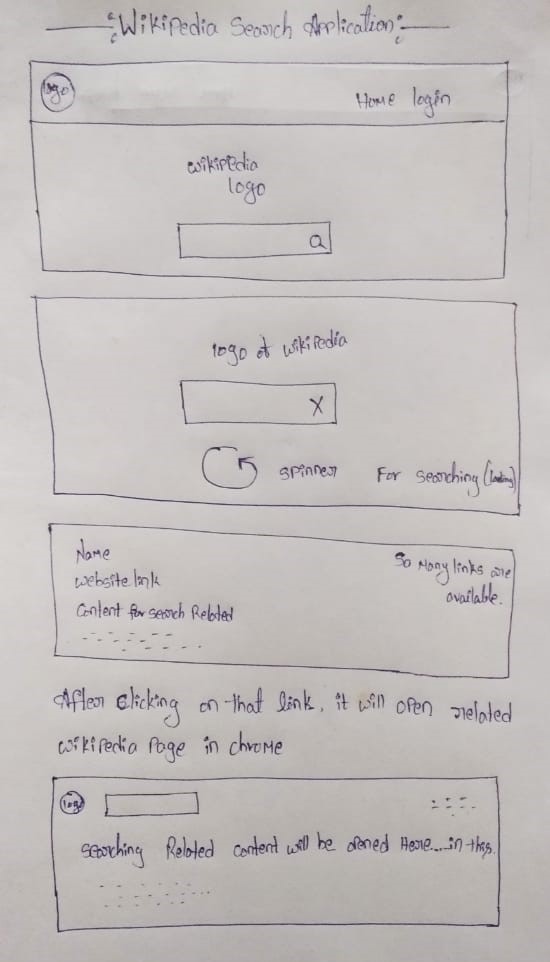 Wikipedia Search Application
logo
Home login
wikipedia
logo
logo of wikipedia
X
spinner For searching (loading)
Name
website link
Content for search Related
So Many links are
available.
After clicking on that link, it will open related
wikipedia Page in chrome
logo
searching Related content will be opened Here...in this.